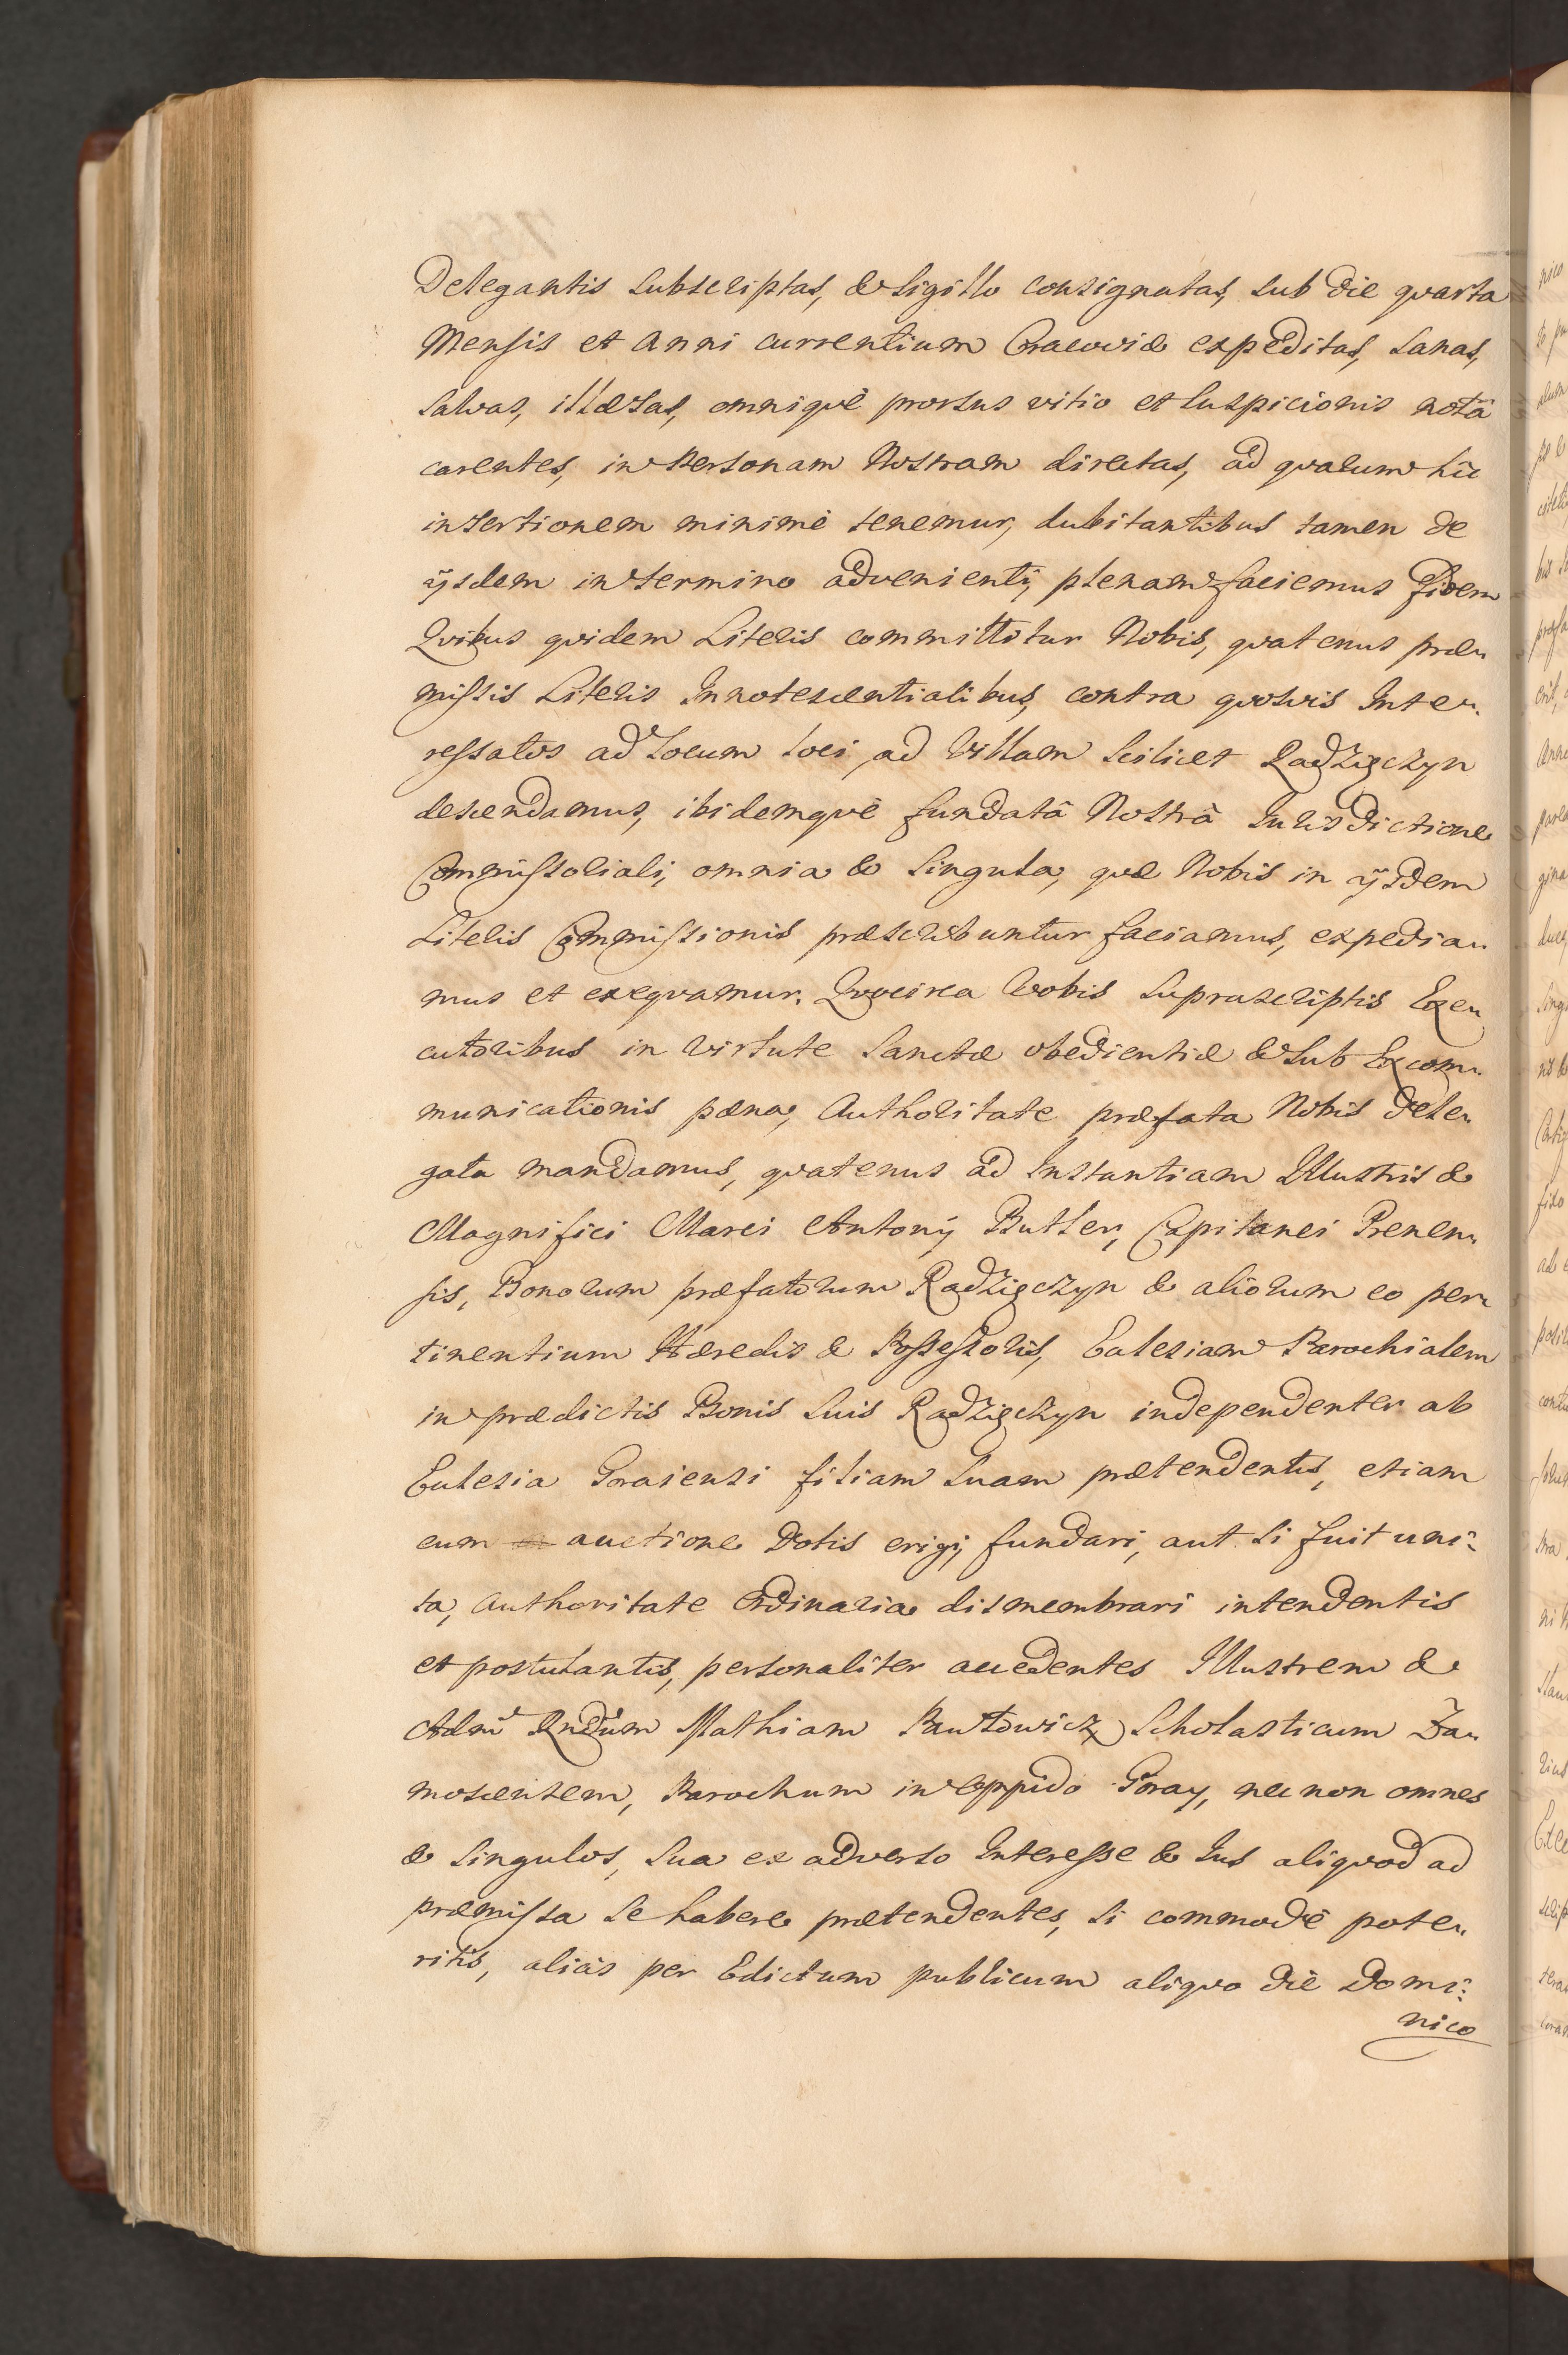 Delegantis subscriptas, & Sigillo consignatas, sub die qvarta
Mensis et Anni currentium Cracoviæ expeditas, sanas,
salvas, illæsas, omniqvè prorsus vitio et suspicionis notâ
carentes, in Personam Nostram directas, ad qvarum hîc
insertionem minimè tenemur, dubitantibus tamen de
ijsdem in termino advenienti, plenam faciemus fidem
Qvibus qvidem Literis committitur Nobis, qvatenus præ„
missis Literis Innotescentialibus, contra qvosvis Inter„
ressatos ad Locum loci, ad Villam scilicet Radzięczyn
descendamus, ibidemqvè fundatâ Nostrâ Jurisdictione
Commissoriali, omnia & singula, qvæ Nobis in ijsdem
Literis Commissionis præscribuntur faciamus, expedia„
mus et exeqvamur. Qvocirca Vobis suprascriptis Exe„
cutoribus in virtute sanctæ obedientiæ & sub Excom„
municationis pæna, Authoritate præfata Nobis dele„
gata mandamus, qvatenus ad Instantiam Illustris &
Magnifici Marci Antonij Butler, Capitanei Prenen„
sis, Bonorum præfatorum Radzięczyn & aliorum eo per„
tinentium Hæredis & Possessoris, Ecclesiam Parochialem
in prædictis Bonis suis Radzięczyn independenter ab
Ecclesia Goraiensi filiam suam prætendentis, etiam
cum auctione Dotis erigi, fundari, aut si fuit uni„
ta, Authoritate Ordinaria dismembrari intendentis
et postulantis, personaliter accedentes Illustrem &
Adm Rndum Mathiam Pawłowicz Scholasticum Za„
moscensem, Parochum in Oppido Goray, nec non omnes
& singulos, sua ex adverso Interesse & Jus aliqvod ad
præmissa se habere prætendentes, si commodè pote„
ritis, aliàs per Edictum publicum aliqvo die Domi„
nico